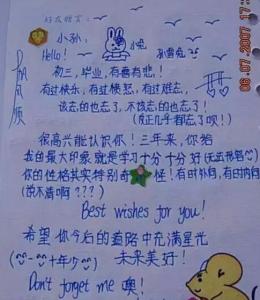 好友赠言:
小孙:
Hello!
小兔
孙雪兔
初三,毕业,有喜有悲!
有过快乐,有过愤怒,有过难志,
该志的也志了,不该志的也志了!
(反正几乎都志了呗!)
很高兴能认识你!三年来,你给
我的最大印象就是学习十分十分好(无法形容)
你的性格其实特别奇怪!有时外向,有时内向
(说不清啊???)
Best wishes for you!
希望你今后的道路中充满星光
(十年少)未来美好!
Don't forget me 噢!
帆风顺
06.07.2007 17: